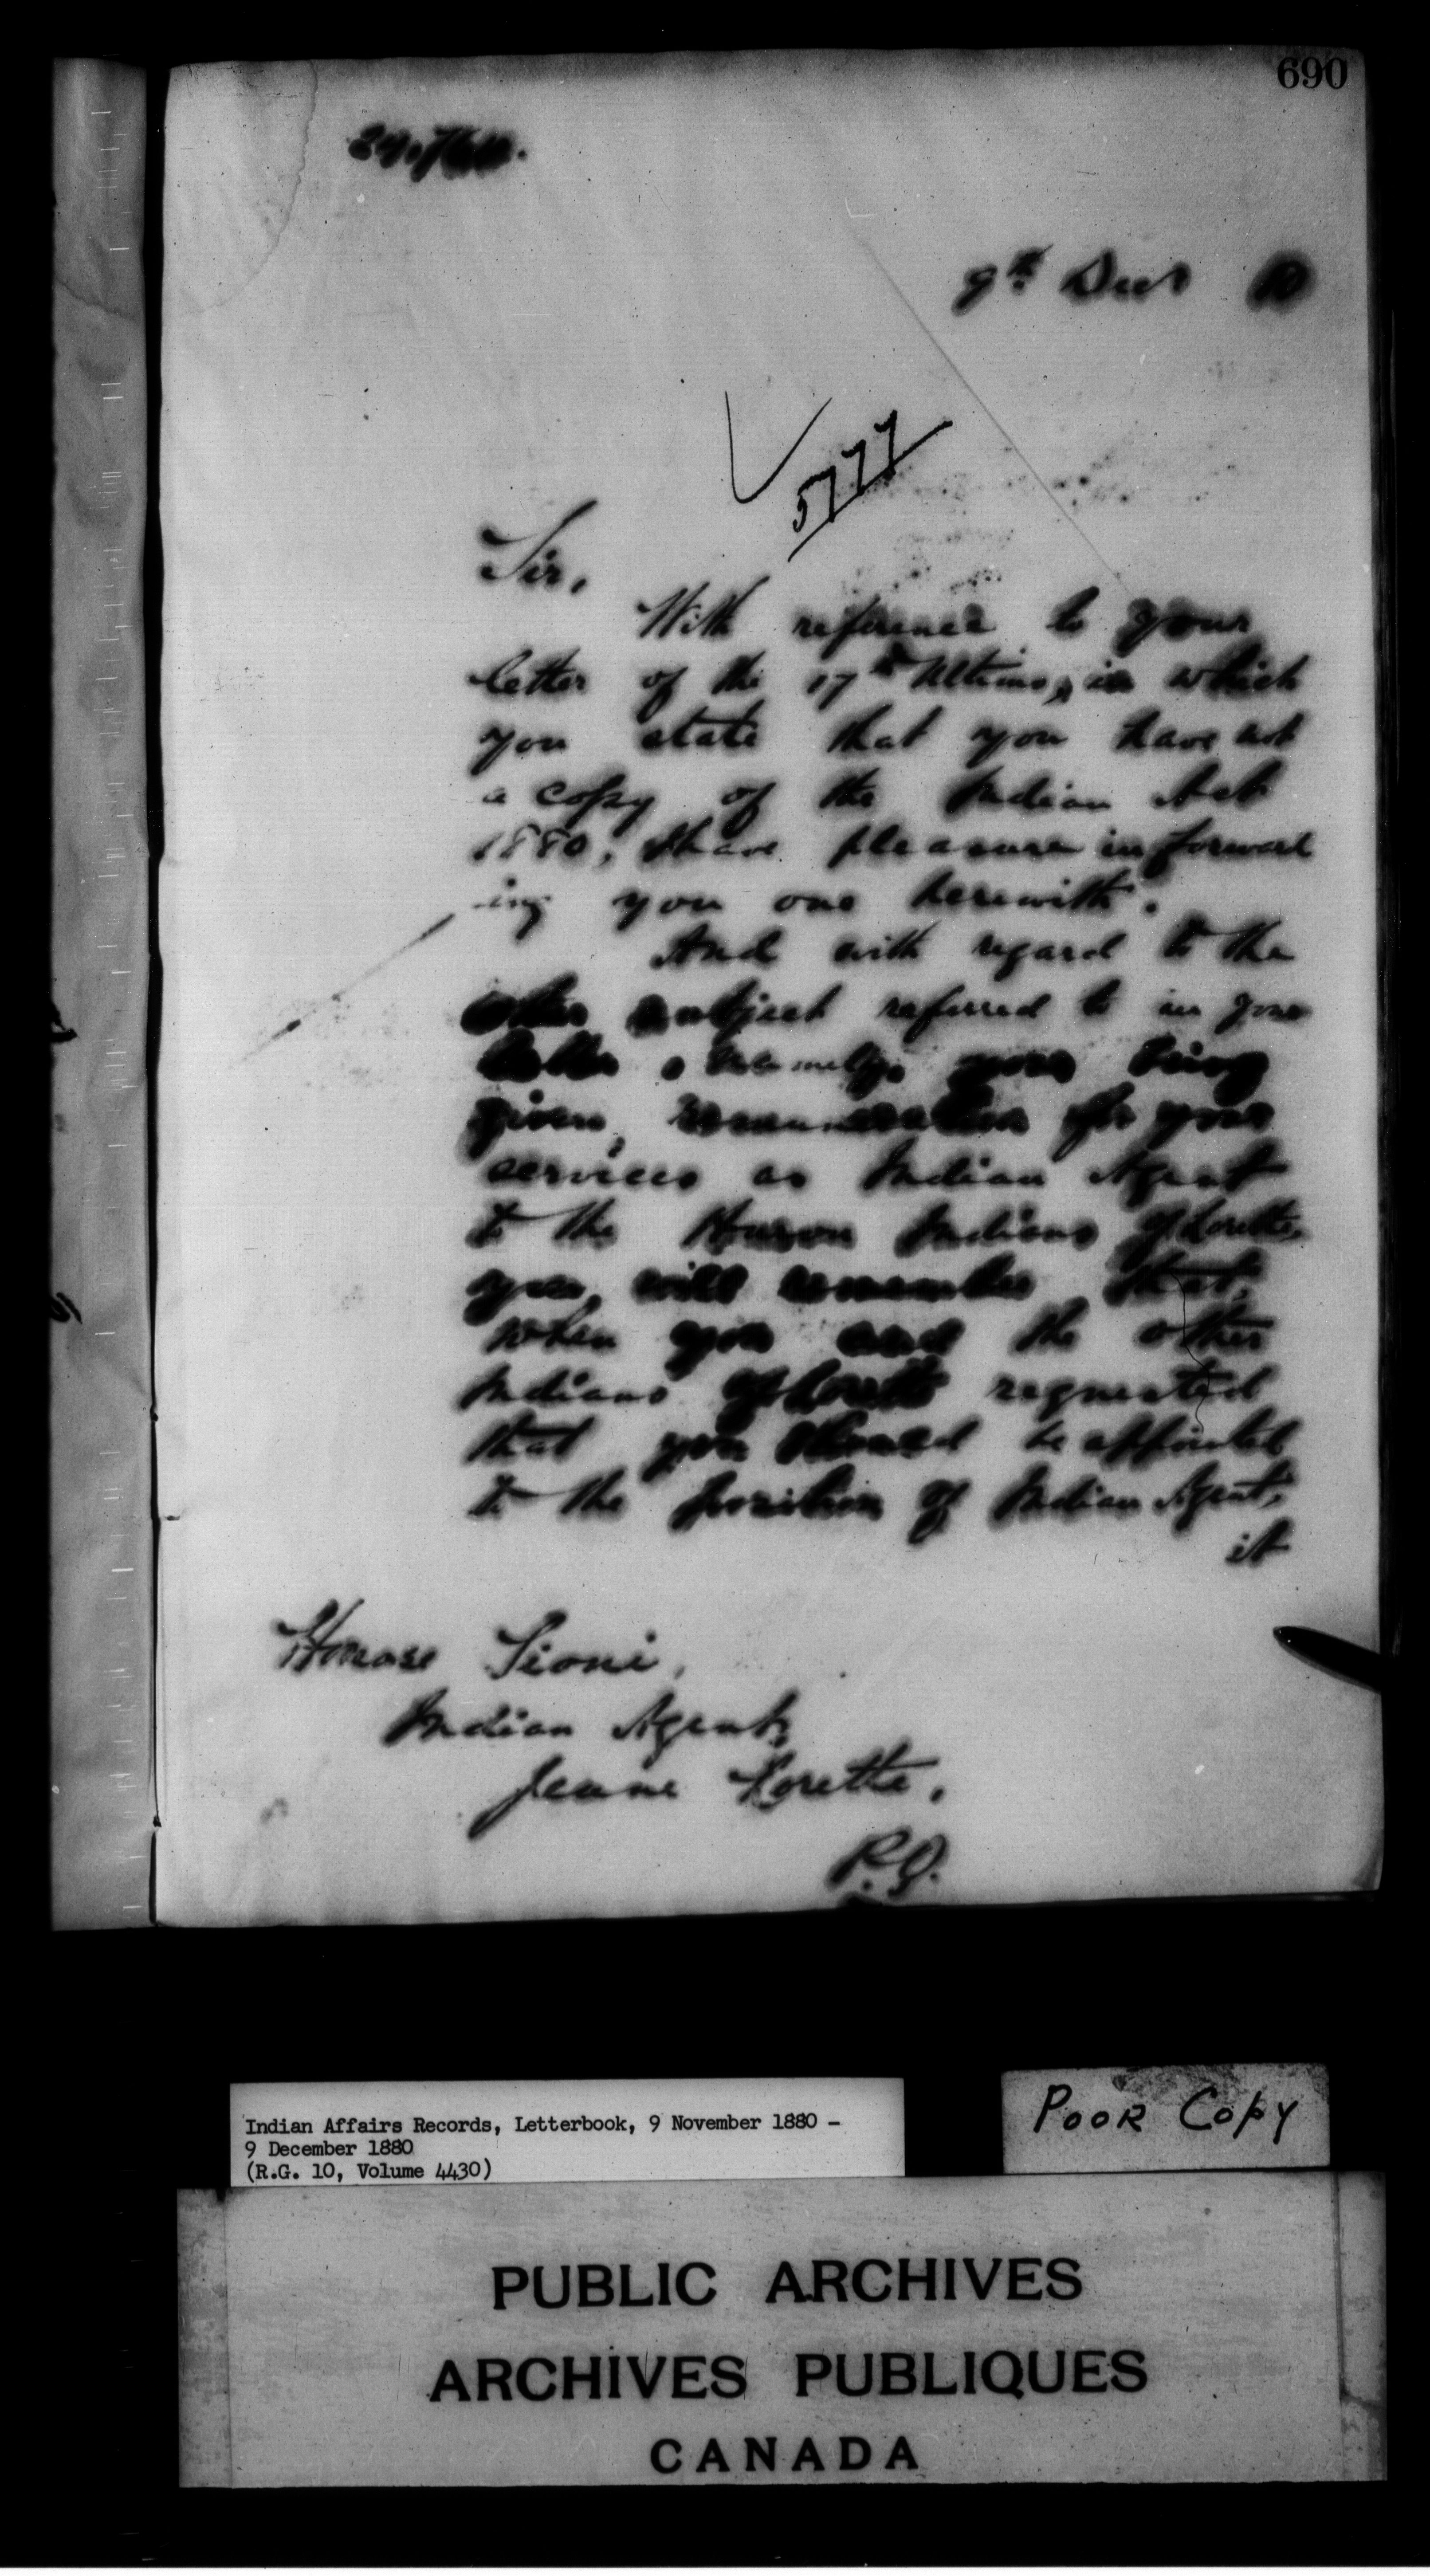 690
9th Decr 80
5777
Sir,
With reference to your
letter of the 17th Ultimo, in which
you state that you have not
a copy of the Indian Act
1880, I have pleasure in forward
ing you one herewith.
And with regard to the
other subject referred to in your
letter, namely, your being
given remuneration for your
services as Indian Agent
to the Huron Indians of Lorette,
you will remember that,
when you and the other
Indians of Lorette requested
that you should be appointed
to the position of Indian Agent,
it
Sioni,
Indian Agent,
Jeune Lorette,
P.Q.
Indian Affairs Records, Letterbook, 9 November 1880 –
9 December 1880
(R.G. 10, Volume 4430)
POOR COPY
PUBLIC ARCHIVES
ARCHIVES PUBLIQUES
CANADA